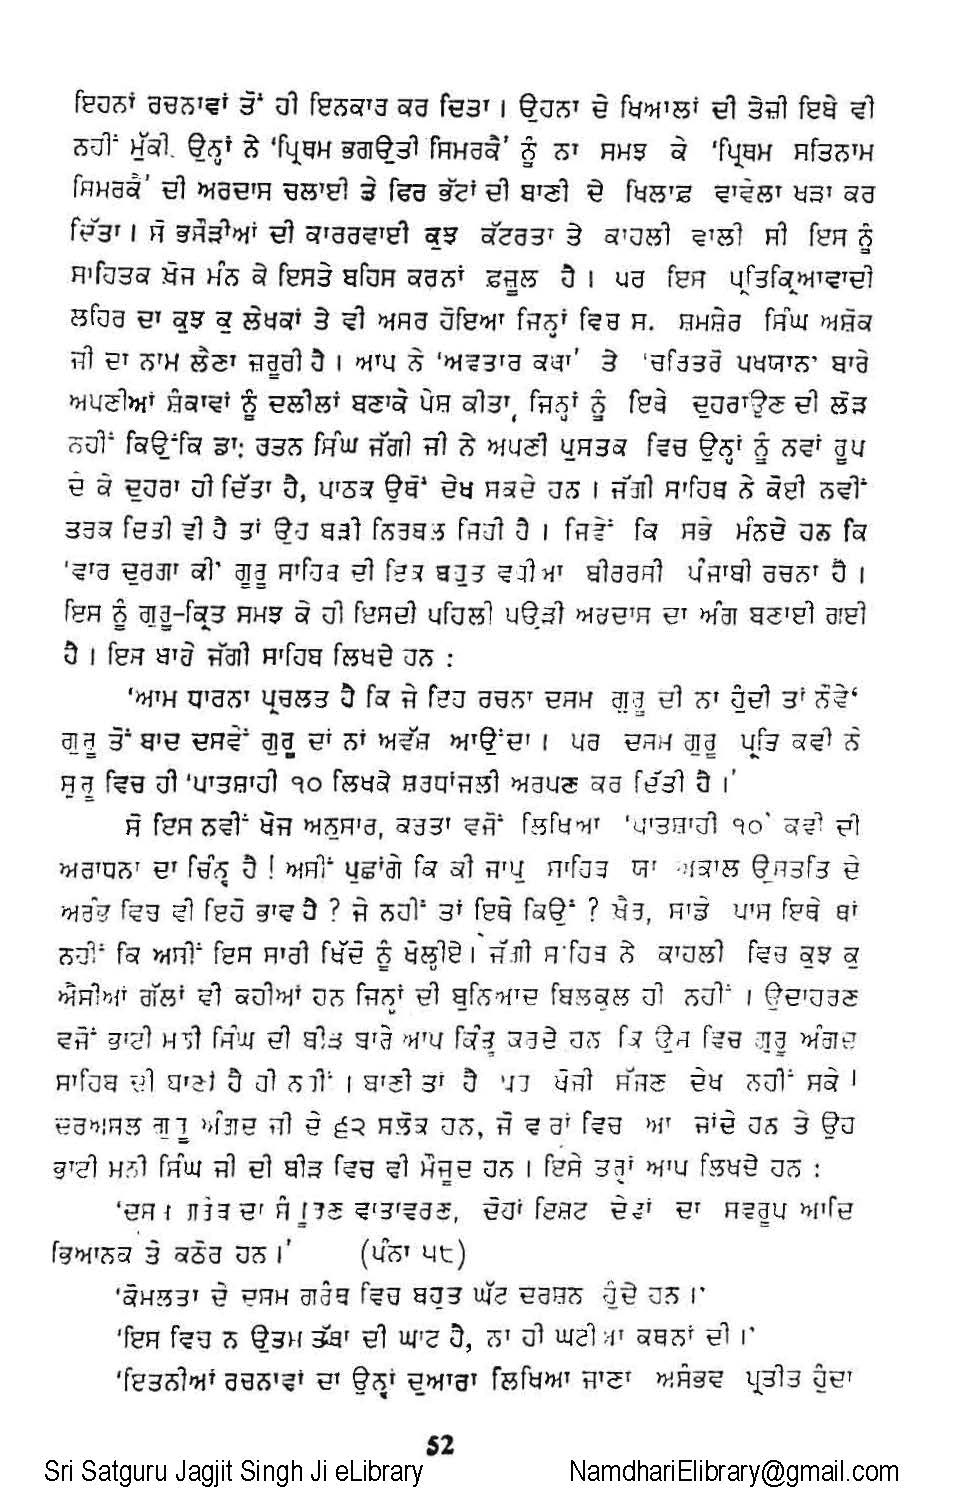 ਇਹਨਾਂ ਰਚਨਾਵਾਂ ਤੋਂ ਹੀ ਇਨਕਾਰ ਕਰ ਦਿਤਾ। ਉਹਨਾ ਦੇ ਖਿਆਲਾਂ ਦੀ ਤੇਜ਼ੀ ਇਥੇ ਵੀ
ਨਹੀਂ ਮੁੱਕੀ. ਉਨ੍ਹਾਂ ਨੇ ‘ਪ੍ਰਿਥਮ ਭਗਉਤੀ ਸਿਮਰਕੈ’ ਨੂੰ ਨਾ ਸਮਝ ਕੇ ‘ਪ੍ਰਿਥਮ ਸਤਿਨਾਮ
ਸਿਮਰਕੈ’ ਦੀ ਅਰਦਾਸ ਚਲਾਈ ਤੇ ਫਿਰ ਭੱਟਾਂ ਦੀ ਬਾਣੀ ਦੇ ਖਿਲਾਫ਼ ਵਾਵੇਲਾ ਖੜਾ ਕਰ
ਦਿੱਤਾ। ਸੋ ਭਸੌੜੀਆਂ ਦੀ ਕਾਰਰਵਾਈ ਕੁਝ ਕੱਟਰਤਾ ਤੇ ਕਾਹਲੀ ਵਾਲੀ ਸੀ ਇਸ ਨੂੰ
ਸਾਹਿਤਕ ਖ਼ੋਜ ਮੰਨ ਕੇ ਇਸਤੇ ਬਹਿਸ ਕਰਨਾਂ ਫ਼ਜ਼ੂਲ ਹੈ। ਪਰ ਇਸ ਪ੍ਰਤਿਕ੍ਰਿਆਵਾਦੀ
ਲਹਿਰ ਦਾ ਕੁਝ ਕੁ ਲੇਖਕਾਂ ਤੇ ਵੀ ਅਸਰ ਹੋਇਆ ਜਿਨ੍ਹਾਂ ਵਿਚ ਸ. ਸ਼ਮਸ਼ੇਰ ਸਿੰਘ ਅਸ਼ੋਕ
ਜੀ ਦਾ ਨਾਮ ਲੈਣਾ ਜ਼ਰੂਰੀ ਹੈ। ਆਪ ਨੇ ‘ਅਵਤਾਰ ਕਥਾ’ ਤੇ ‘ਚਰਿਤਰੋ ਪਖਯਾਨ’ ਬਾਰੇ
ਅਪਣੀਆਂ ਸ਼ੰਕਾਵਾਂ ਨੂੰ ਦਲੀਲਾਂ ਬਣਾਕੇ ਪੇਸ਼ ਕੀਤਾ, ਜਿਨ੍ਹਾਂ ਨੂੰ ਇਥੇ ਦੁਹਰਾਉਣ ਦੀ ਲੋੜ
ਨਹੀਂ ਕਿਉਂਕਿ ਡਾ: ਰਤਨ ਸਿੰਘ ਜੱਗੀ ਜੀ ਨੇ ਅਪਣੀ ਪੁਸਤਕ ਵਿਚ ਉਨ੍ਹਾਂ ਨੂੰ ਨਵਾਂ ਰੂਪ
ਦੇ ਕੇ ਦੁਹਰਾ ਹੀ ਦਿੱਤਾ ਹੈ, ਪਾਠਕ ਉਥੋਂ ਦੇਖ ਸਕਦੇ ਹਨ। ਜੱਗੀ ਸਾਹਿਬ ਨੇ ਕੋਈ ਨਵੀਂ
ਤਰਕ ਦਿਤੀ ਵੀ ਹੈ ਤਾਂ ਉਹ ਬੜੀ ਨਿਰਬਲ ਜਿਹੀ ਹੈ। ਜਿਵੇਂ ਕਿ ਸਭੇ ਮੰਨਦੇ ਹਨ ਕਿ
‘ਵਾਰ ਦੁਰਗਾ ਕੀ’ ਗੁਰੂ ਸਾਹਿਬ ਦੀ ਇਕ ਬਹੁਤ ਵਧੀਆ ਬੀਰਰਸੀ ਪੰਜਾਬੀ ਰਚਨਾ ਹੈ।
ਇਸ ਨੂੰ ਗੁਰੂ-ਕ੍ਰਿਤ ਸਮਝ ਕੇ ਹੀ ਇਸਦੀ ਪਹਿਲੀ ਪਉੜੀ ਅਰਦਾਸ ਦਾ ਅੰਗ ਬਣਾਈ ਗਈ
ਹੈ। ਇਸ ਬਾਰੇ ਜੱਗੀ ਸਾਹਿਬ ਲਿਖਦੇ ਹਨ :
‘ਆਮ ਧਾਰਨਾ ਪ੍ਰਚਲਤ ਹੈ ਕਿ ਜੇ ਇਹ ਰਚਨਾ ਦਸਮ ਗੁਰੂ ਦੀ ਨਾ ਹੁੰਦੀ ਤਾਂ ਨੌਵੇਂ
ਗੁਰੂ ਤੋਂ ਬਾਦ ਦਸਵੇਂ ਗੁਰੂ ਦਾਂ ਨਾਂ ਅਵੱਸ਼ ਆਉਂਦਾ। ਪਰ ਦਸਮ ਗੁਰੂ ਪ੍ਰਤਿ ਕਵੀ ਨੇ
ਸ਼ੁਰੂ ਵਿਚ ਹੀ ‘ਪਾਤਸ਼ਾਹੀ ੧੦ ਲਿਖਕੇ ਸ਼ਰਧਾਂਜਲੀ ਅਰਪਣ ਕਰ ਦਿੱਤੀ ਹੈ।’
ਸੋ ਇਸ ਨਵੀਂ ਖੋਜ ਅਨੁਸਾਰ, ਕਰਤਾ ਵਜੋਂ ਲਿਖਿਆ ‘ਪਾਤਸ਼ਾਹੀ ੧੦’ ਕਵੀ ਦੀ
ਅਰਾਧਨਾ ਦਾ ਚਿੰਨ੍ਹ ਹੈ! ਅਸੀਂ ਪੁਛਾਂਗੇ ਕਿ ਕੀ ਜਾਪੁ ਸਾਹਿਬ ਯਾ ਅਕਾਲ ਉਸਤਤਿ ਦੇ
ਅਰੰਭ ਵਿਚ ਵੀ ਇਹੋ ਭਾਵ ਹੈ? ਜੇ ਨਹੀਂ ਤਾਂ ਇਥੇ ਕਿਉਂ? ਖੈਰ, ਸਾਡੇ ਪਾਸ ਇਥੇ ਥਾਂ
ਨਹੀਂ ਕਿ ਅਸੀਂ ਇਸ ਸਾਰੀ ਖਿੱਦੋ ਨੂੰ ਖੋਲ੍ਹੀਏ। ਜੱਗੀ ਸਾਹਿਬ ਨੇ ਕਾਹਲੀ ਵਿਚ ਕੁਝ ਕੁ
ਐਸੀਆਂ ਗੱਲਾਂ ਵੀ ਕਹੀਆਂ ਹਨ ਜਿਨ੍ਹਾਂ ਦੀ ਬੁਨਿਆਦ ਬਿਲਕੁਲ ਹੀ ਨਹੀਂ। ਉਦਾਹਰਣ
ਵਜੋਂ ਭਾਈ ਮਨੀ ਸਿੰਘ ਦੀ ਬੀੜ ਬਾਰੇ ਆਪ ਕਿੰਤੂ ਕਰਦੇ ਹਨ ਕਿ ਉਸ ਵਿਚ ਗੁਰੂ ਅੰਗਦ
ਸਾਹਿਬ ਦੀ ਬਾਣੀ ਹੈ ਹੀ ਨਹੀਂ। ਬਾਣੀ ਤਾਂ ਹੈ ਪਰ ਖੋਜੀ ਸੱਜਣ ਦੇਖ ਨਹੀਂ ਸਕੇ।
ਦਰਅਸਲ ਗੁਰੂ ਅੰਗਦ ਜੀ ਦੇ ੬੨ ਸਲੋਕ ਹਨ, ਜੋ ਵਾਰਾਂ ਵਿਚ ਆ ਜਾਂਦੇ ਹਨ ਤੇ ਉਹ
ਭਾਈ ਮਨੀ ਸਿੰਘ ਜੀ ਦੀ ਬੀੜ ਵਿਚ ਵੀ ਮੌਜੂਦ ਹਨ। ਇਸੇ ਤਰ੍ਹਾਂ ਆਪ ਲਿਖਦੇ ਹਨ :
‘ਦਸਮ ਗਰੰਥ ਦਾ ਸੰਪੂਰਣ ਵਾਤਾਵਰਣ, ਦੋਹਾਂ ਇਸ਼ਟ ਦੇਵਾਂ ਦਾ ਸਵਰੂਪ ਆਦਿ
ਭਿਆਨਕ ਤੇ ਕਠੋਰ ਹਨ।’ (ਪੰਨਾ ੫੮)
‘ਕੋਮਲਤਾ ਦੇ ਦਸਮ ਗਰੰਥ ਵਿਚ ਬਹੁਤ ਘੱਟ ਦਰਸ਼ਨ ਹੁੰਦੇ ਹਨ।’
‘ਇਸ ਵਿਚ ਨ ਉਤਮ ਤੱਥਾਂ ਦੀ ਘਾਟ ਹੈ, ਨਾ ਹੀ ਘਟੀਆ ਕਥਨਾਂ ਦੀ।’
‘ਇਤਨੀਆਂ ਰਚਨਾਵਾਂ ਦਾ ਉਨ੍ਹਾਂ ਦੁਆਰਾ ਲਿਖਿਆ ਜਾਣਾ ਅਸੰਭਵ ਪ੍ਰਤੀਤ ਹੁੰਦਾ
52
Sri Satguru Jagjit Singh Ji eLibrary NamdhariElibrary@gmail.com